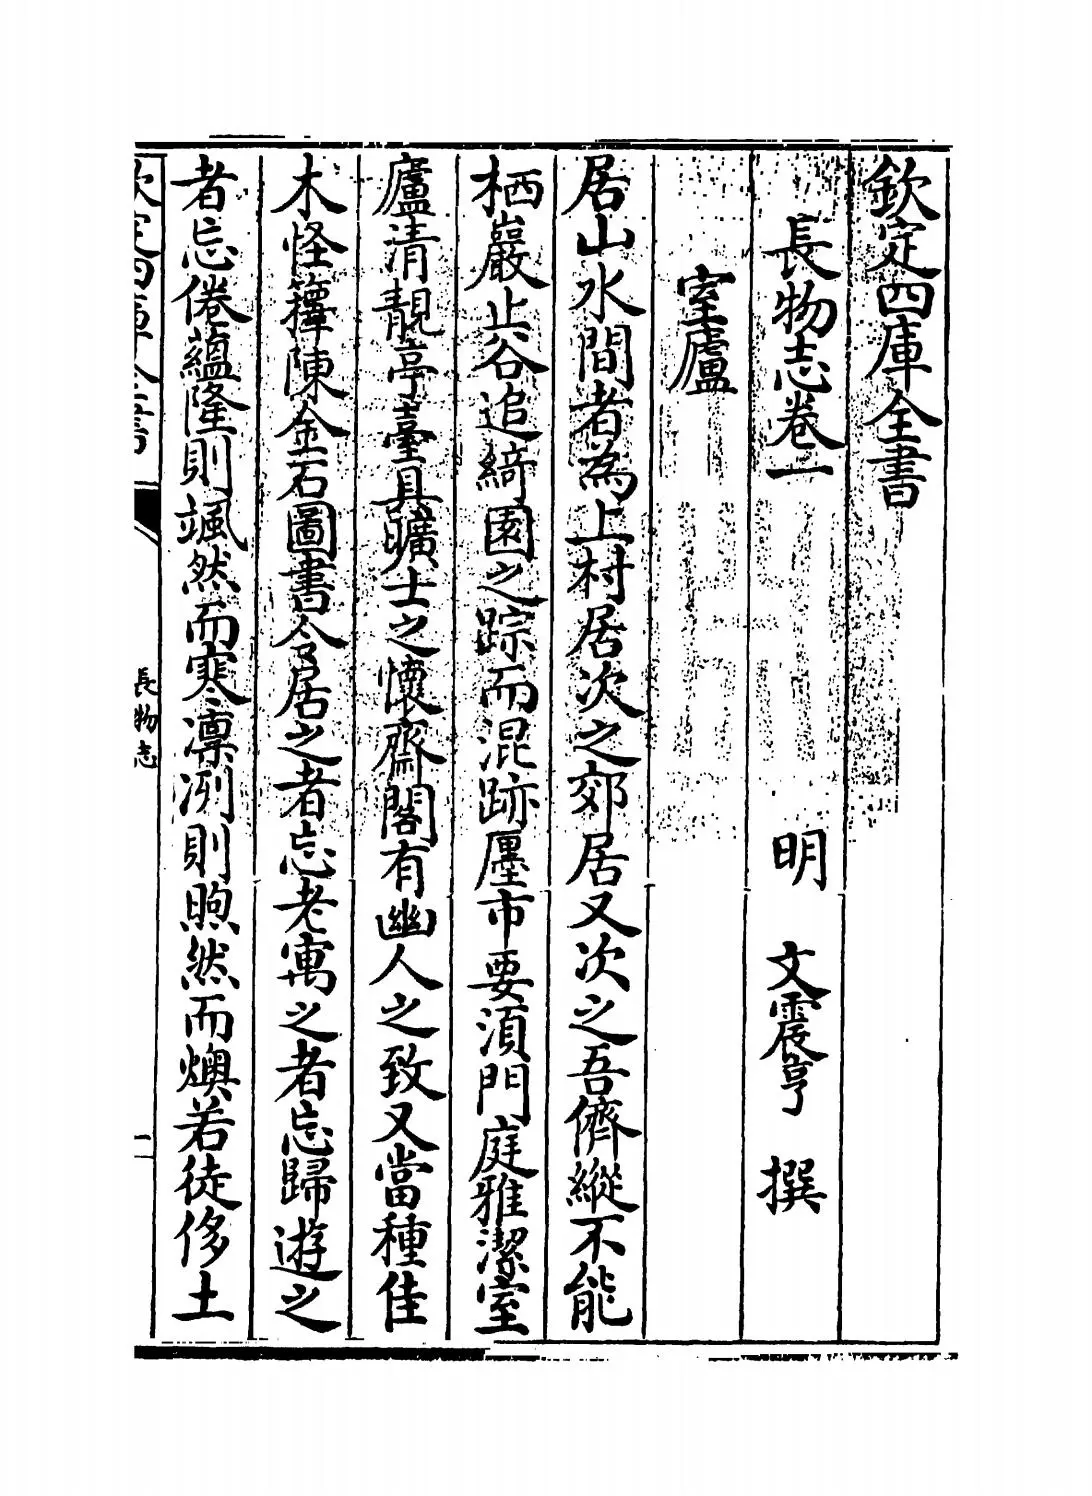 欽定四庫全書
長物志卷一
明 文震亨 撰
室廬
居山水間者為上村居次之郊居又次之吾儕縱不能
栖巖止谷追綺園之踪而混跡廛市要須門庭雅潔室
廬清靚亭臺具曠士之懷齋閣有幽人之致又當種佳
木怪籜陳金石圖書令居之者忘老寓之者忘歸遊之
者忘倦蘊隆則颯然而寒凛冽則煦然而燠若徒侈土
長物志